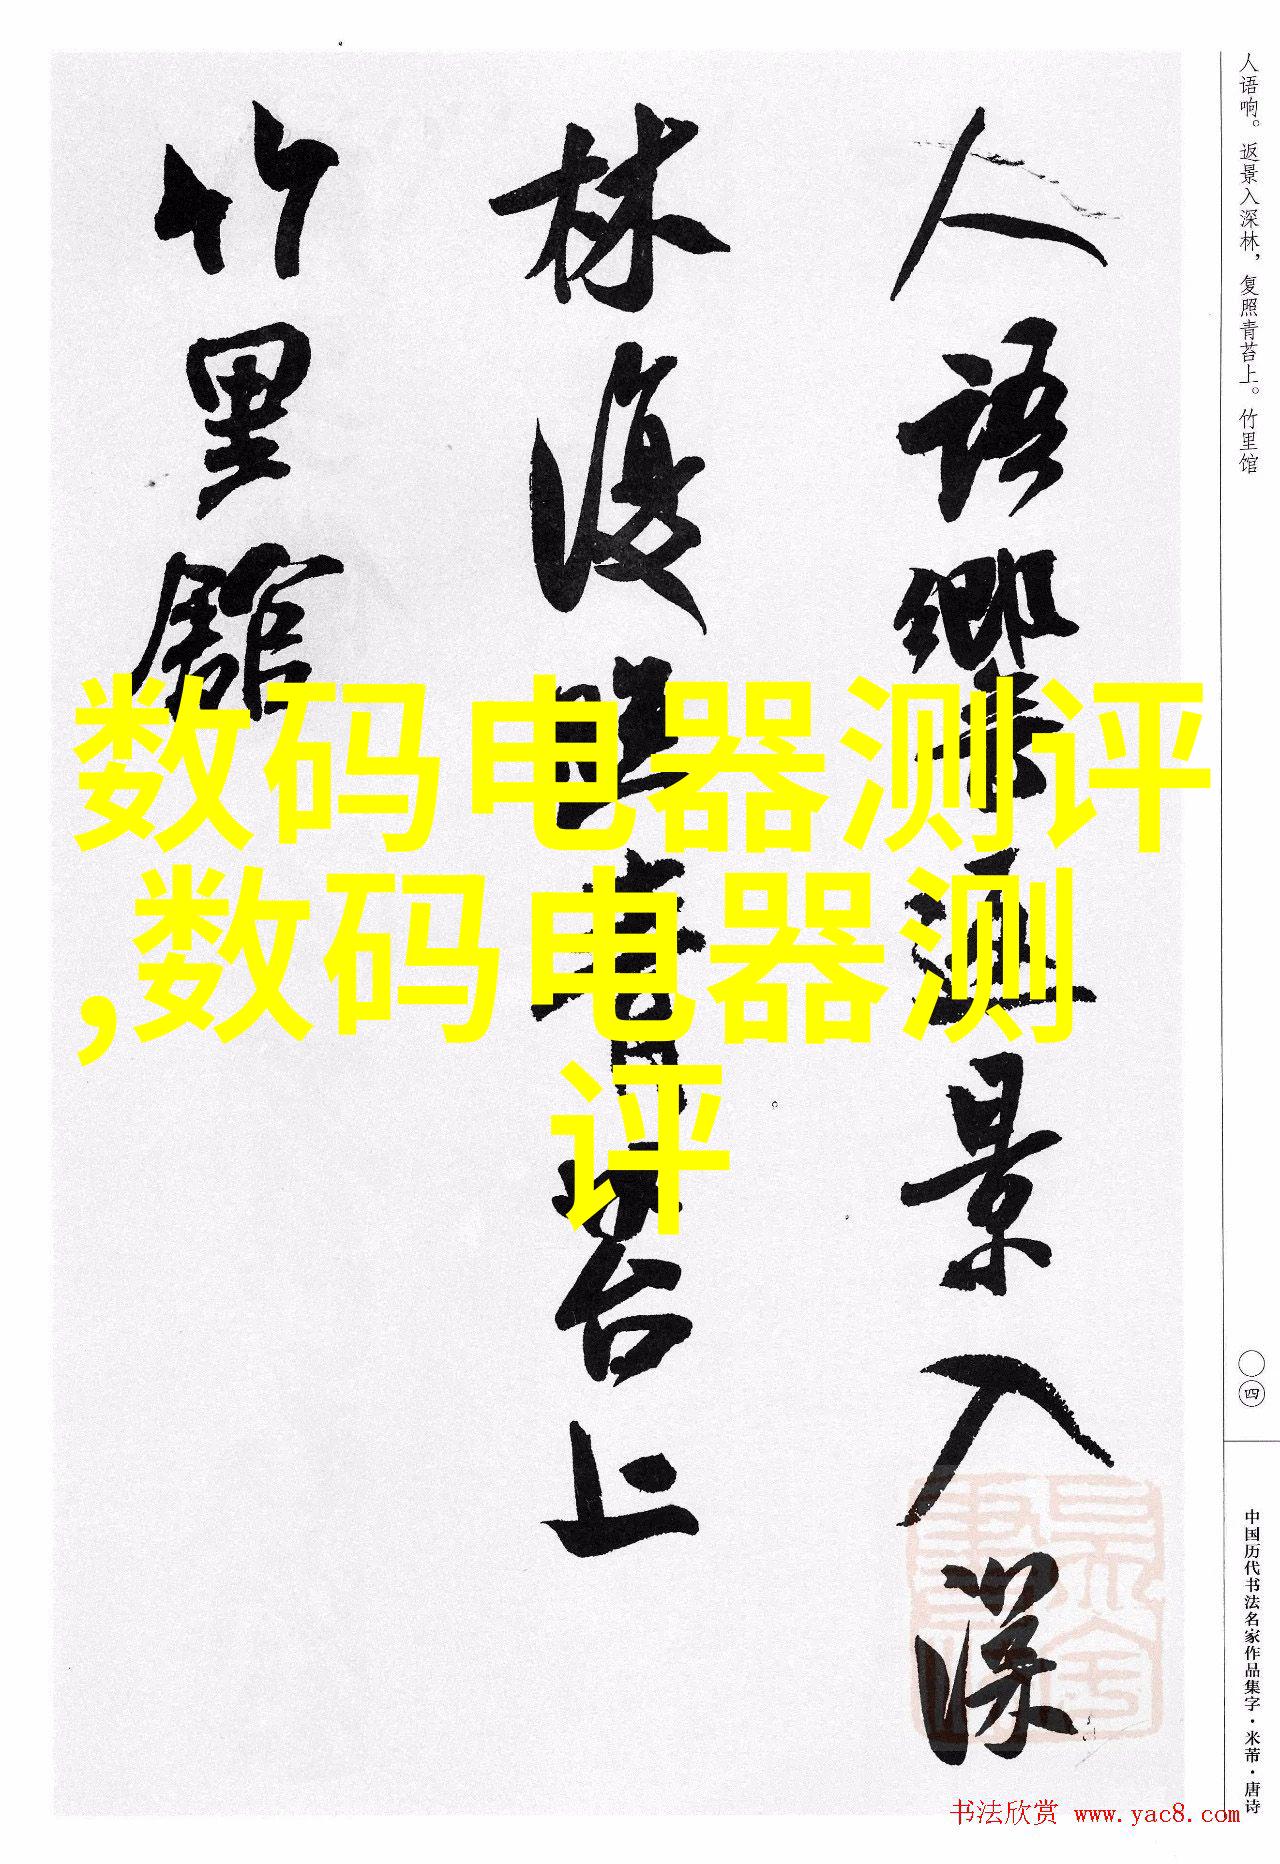 人语响。返景入深林，复照青苔上。竹里馆
人語響返景入深
林復照青苔上
竹里館
数码电器测评
,数码电器测
评
〇四
中国历代书法名家作品集字·米芾·唐诗
书法欣赏 www.yac8.com